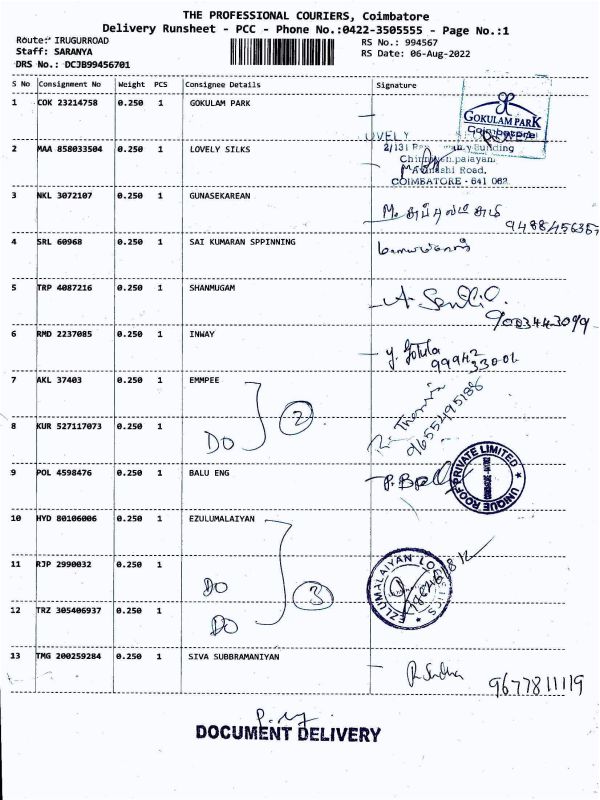 THE PROFESSIONAL COURIERS, Coimbatore
Delivery Runsheet - PCC - Phone No.:0422-3505555 - Page No.:1
Route: IRUGURROAD
Staff: SARANYA
DRS No.: DCJB99456701
RS No.: 994567
RS Date: 06-Aug-2022
S No Consignment No Weight PCS Consignee Details Signature
1 COK 23214758 0.250 1 GOKULAM PARK
GOKULAM PARK
Coimbatore
2 MAA 858033504 0.250 1 LOVELY SILKS
LOVELY
2/131 Building
palayam,
Avinashi Road,
COIMBATORE - 641 062
3 NKL 3072107 0.250 1 GUNASEKAREAN
9488456357
4 SRL 60968 0.250 1 SAI KUMARAN SPPINNING
5 TRP 4087216 0.250 1 SHANMUGAM
9003443099
6 RMD 2237085 0.250 1 INWAY
99942
33001
7 AKL 37403 0.250 1 EMMPEE
2
9655495188
8 KUR 527117073 0.250 1 DO
9 POL 4598476 0.250 1 BALU ENG
UNIQUE ROOF PRIVATE LIMITED
10 HYD 80106006 0.250 1 EZULUMALAIYAN
11 RJP 2990032 0.250 1 DO
3
EZLUMALAIYAN LOGISTICS
12 TRZ 305406937 0.250 1 DO
13 TMG 200259284 0.250 1 SIVA SUBBRAMANIYAN
9677811119
DOCUMENT DELIVERY